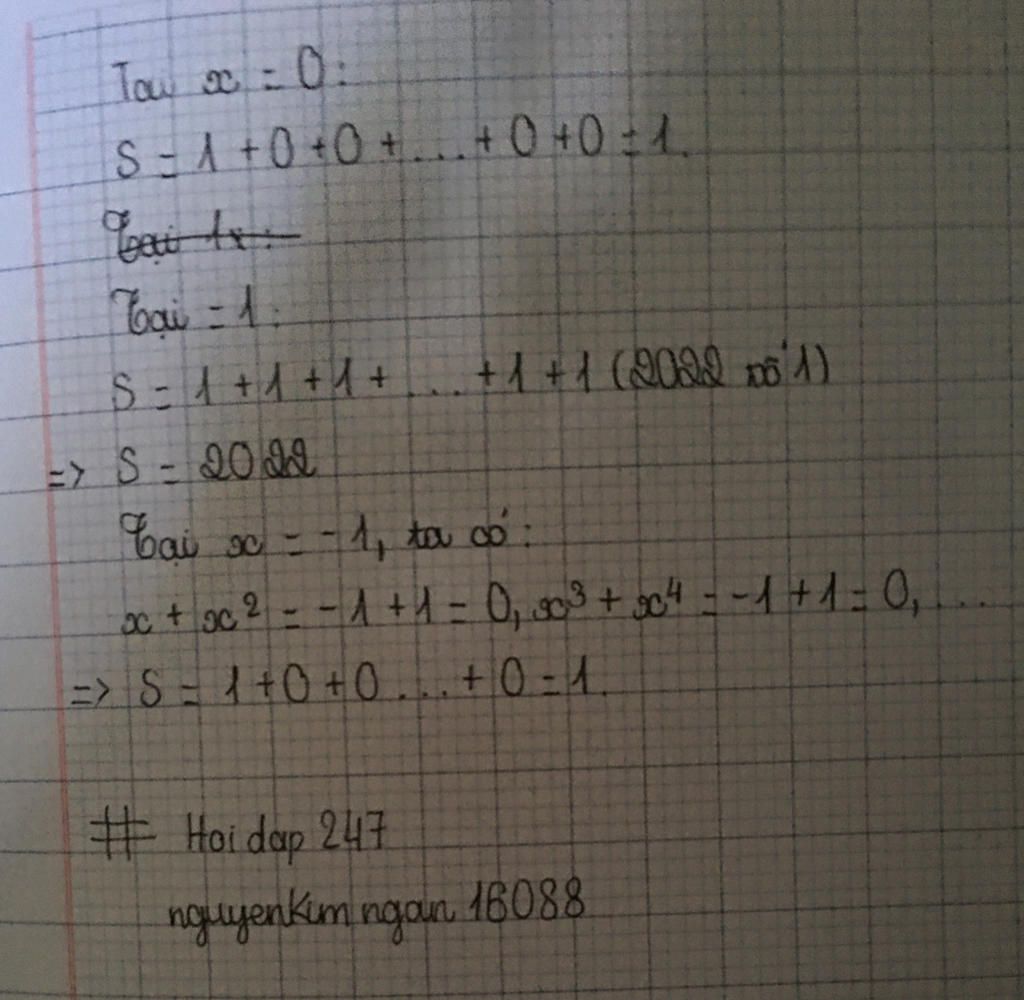 Tại x = 0:
S = 1 + 0 + 0 + .... + 0 + 0 = 1.
Tại 1x:
Tại = 1:
S = 1 + 1 + 1 + .... + 1 + 1 (2022 số 1)
=> S = 2022
Tại x = -1, ta có:
x + x² = -1 + 1 = 0, x³ + x⁴ = -1 + 1 = 0, ...
=> S = 1 + 0 + 0 .... + 0 = 1.
# Hoidap 247
nguyenkimngan 16088